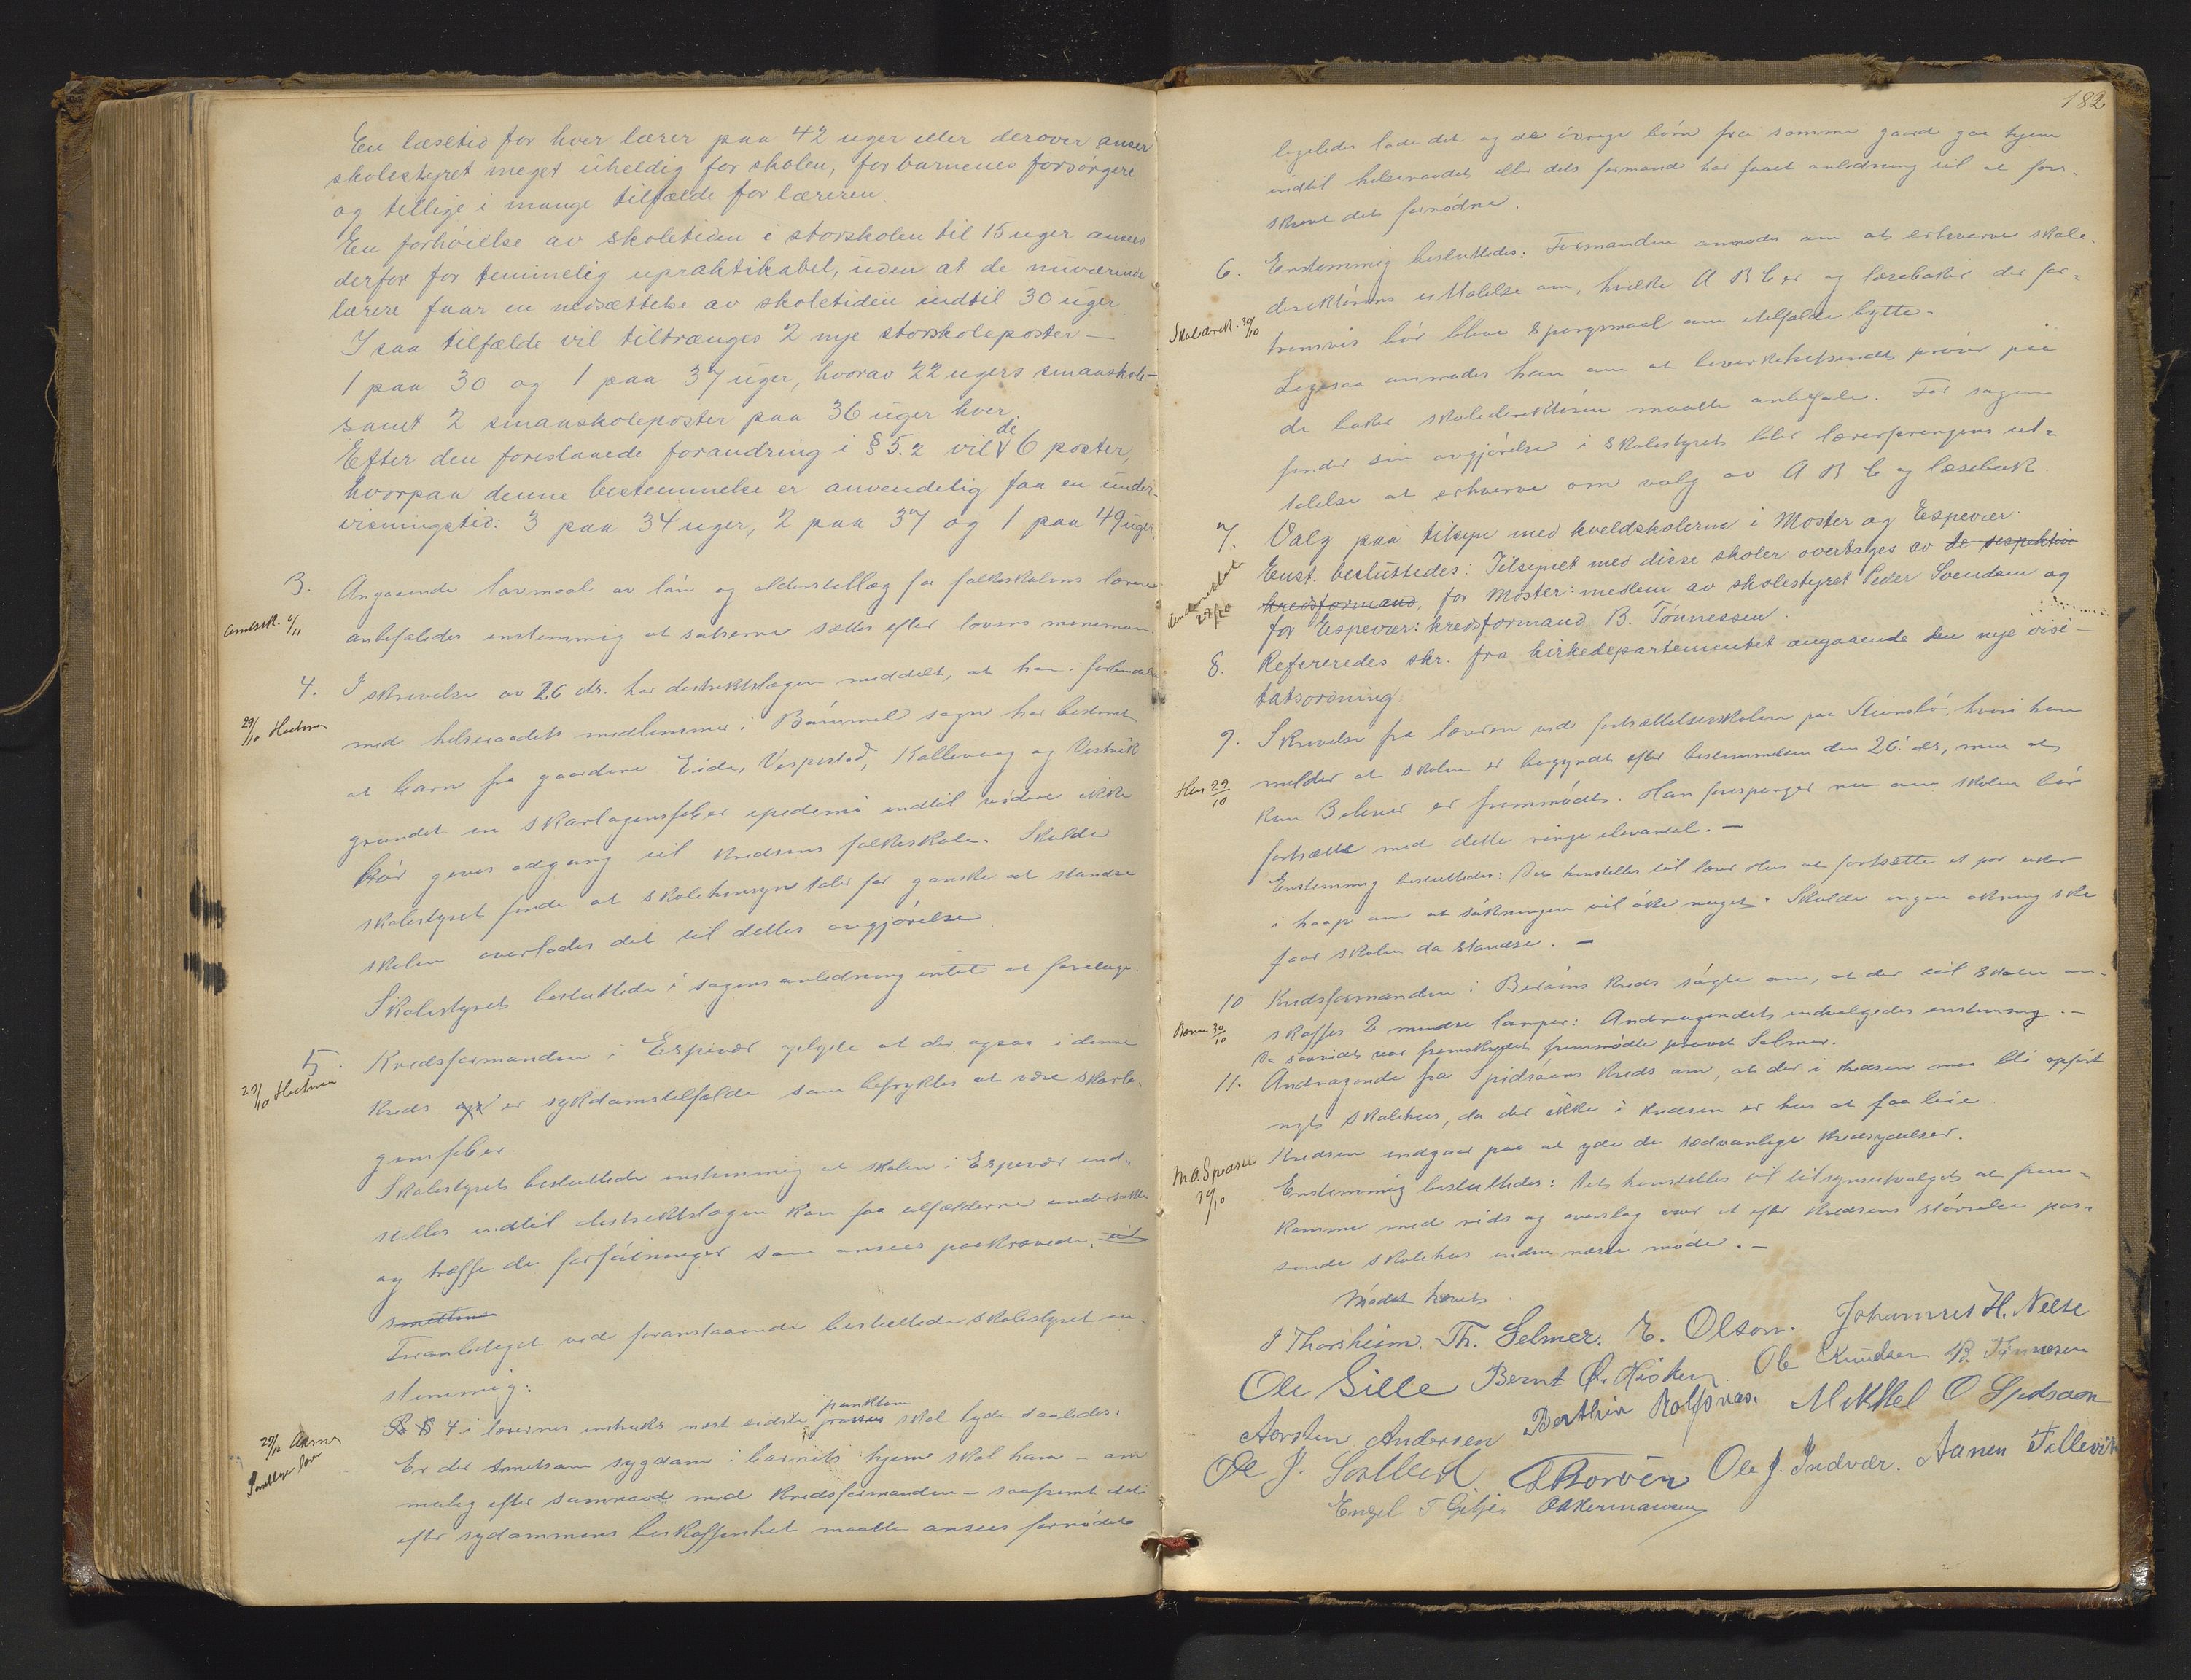 En læsetid for hver lærer paa 42 uger eller derover anser
skolestyret meget uheldig for skolen, for barnenes forsørgere
og tillige i mange tilfælde for læreren.
En forhøielse av skoletiden i storskolen til 15 uger ansees
derfor for temmelig upraktikabel, uden at de nuværende
lærere faar en nedsættelse av skoletiden indtil 30 uger
I saa tilfælde vil tiltrænges 2 nye storskoleposter -
1 paa 30 og 1 paa 37 uger, hvorav 22 ugers smaaskole-
samt 2 smaaskoleposter paa 36 uger hver.
Efter den foreslaaede forandring i § 5.2 vil de 6 poster,
hvorpaa denne bestemmelse er anvendelig faa en under-
visningstid: 3 paa 34 uger, 2 paa 37 og 1 paa 49 uger.
3. Angaaende lovmaal av løn og alderstillæg for folkeskolens lærere
amtssk. 6/11
anbefaledes enstemmig at satserne sættes efter lovens minimum.
4. I skrivelse av 26 ds. har distriktslægen meddelt, at han i forbindelse
29/10
med helseraadets medlemmer i Bømmel sogn har bestemt
at barn fra gaardene Eide, Vespestad, Kallevaag og Vestvik
grundet en skarlagensfeber epidemi indtil videre ikke
bør gives adgang til kredsens folkeskole. Skulde
skolestyret finde at skolehensyn taler for ganske at standse
skolen overlades det til dettes avgjørelse.
Skolestyret besluttede i sagens anledning intet at foretage.
5. Kredsformanden i Espevær oplyste at der ogsaa i denne
29/10
kreds er sykdomstilfælde som befrygtes at være skarla-
gensfeber.
Skolestyret besluttede enstemmig at skolen i Espevær ind-
stilles indtil distriktslægen kan faa tilfælderne undersøkt
og træffe de forføininger som ansees paakrævede.
smitten
Foranlediget ved foranstaaende besluttede skolestyret en-
stemmig:
punktum
§ 4 i lærernes instruks næst sidste passus skal lyde saaledes:
29/10
Er der smitsom sygdom i barnets hjem skal han - om
mulig efter samraad med kredsformanden - saafremt det
efter sydommens beskaffenhet maatte ansees fornødent
182
ligeledes lade det og de øvrige børn fra samme gaard gaa hjem
indtil helseraadet eller dets formand har faaet anledning til at fore-
skrive det fornødne.
6. Enstemmig besluttedes: Formanden anmodes om at erhverve skole-
direktørens uttalelse om, hvilke A B C er og læsebøker der for-
Skoledirek. 30/10
trinsvis bør blive spørgsmaal om i tilfælde bytte.
Ligesaa anmodes han om at bevirke tilsendt prøver paa
de bøker skoledirektøren maatte anbefale. Før sagen
finder sin avgjørelse i skolestyret blir lærerforeningens ut-
talelse at erhverve om valg av A B C og læsebok.
7. Valg paa tilsyn med kveldskolerne i Moster og Espevær.
Enst. besluttedes: Tilsynet med disse skoler overtages av de respektive
kredsformænd, for Moster: medlem av skolestyret Peder Svendsen og
for Espevær: kredsformand B. Tønnessen.
8. Refereredes skr. fra kirkedepartementet angaaende den nye visi-
tatsordning.
9. Skrivelse fra læreren ved fortsættelsesskolen paa hvori han
Hus 29/10
melder at skolen er begyndt efter bestemmelsen den 26' ds, men at
kun 3 elever er fremmødt. Han forespørger nu om skolen bør
fortsætte med dette ringe elevantal. -
Enstemmig besluttedes: Det henstilles til lærer Hus at fortsætte et par uker
i haap om at søkningen vil øke noget. Skulde ingen økning ske
faar skolen da standse. -
10 Kredsformanden i kreds søgte om, at der til skolen an-
30/10
skaffes 2 mindre lamper: Andragendet indvilgedes enstemmig. -
Da saavidt var fremskredet fremmødte provst Selmer.
11. Andragende fra Spidsøens kreds om, at der i kredsen maa bli opført
nyt skolehus, da der ikke i kredsen er hus at faa leie.
Kredsen indgaar paa at yde de sædvanlige kredsydelser.
Enstemmig besluttedes: Det henstilles til tilsynsutvalget at frem-
komme med rids og overslag over et efter kredsens størrelse pas-
sende skolehus inden næste møde. -
Mødet hævet.
J Thorsheim. Th. Selmer. E. Olson. Johannes H. Nelse
Ole Gille Bernt Ole Knudsen B. Tønnesen
Torsten Andersen Berthin Rolfsnæs. Mikkel O Spidsøen
Ole J. T Borøen Ole J. Indvær. Aanen Tallevik
Engel T Gitje. O Akermansen